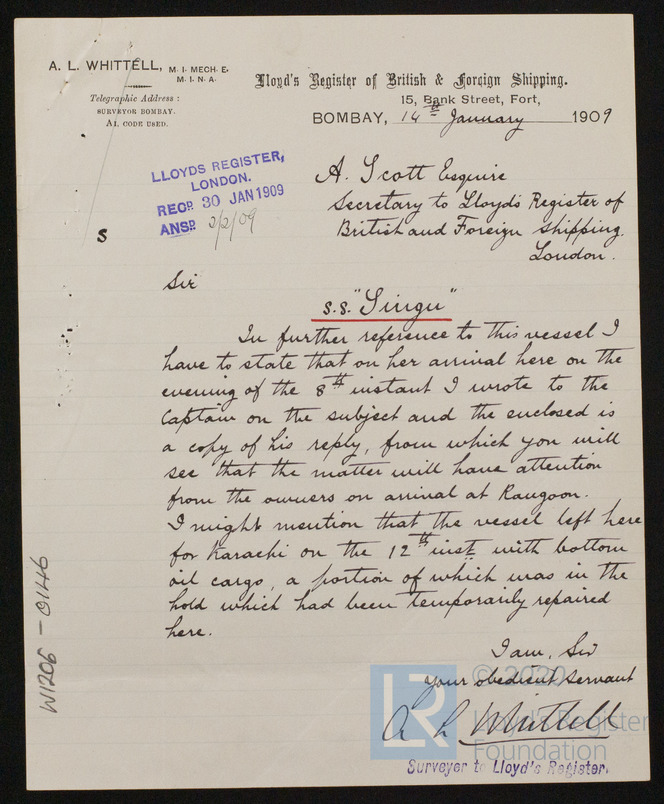 A. L. WHITTELL, M. I. MECH. E,
M. I. N. A.
Telegraphic Address :
SURVEYOR BOMBAY.
A1. CODE USED.
Lloyd's Register of British & Foreign Shipping.
15, Bank Street, Fort,
BOMBAY, 14th January 1909
LLOYDS REGISTER,
LONDON.
RECD. 30 JAN 1909
ANSD. 2/2/09
S
A. Scott Esquire
Secretary to Lloyds Register of
British and Foreign Shipping.
London.
Sir
s.s. "Singu"
In further reference to this vessel I
have to state that on her arrival here on the
evening of the 8th instant I wrote to the
Captain on the subject and the enclosed is
a copy of his reply, from which you will
see that the matter will have attention
from the owners on arrival at Rangoon.
I might mention that the vessel left here
for Karachi on the 12th inst. with bottom
oil cargo, a portion of which was in the
hold which had been temporarily repaired
here.
I am, Sir
your obedient servant
A L Whittell
Surveyor to Lloyd's Register.
W1206 - 0146
LR
© 2020
Lloyd's Register
Foundation